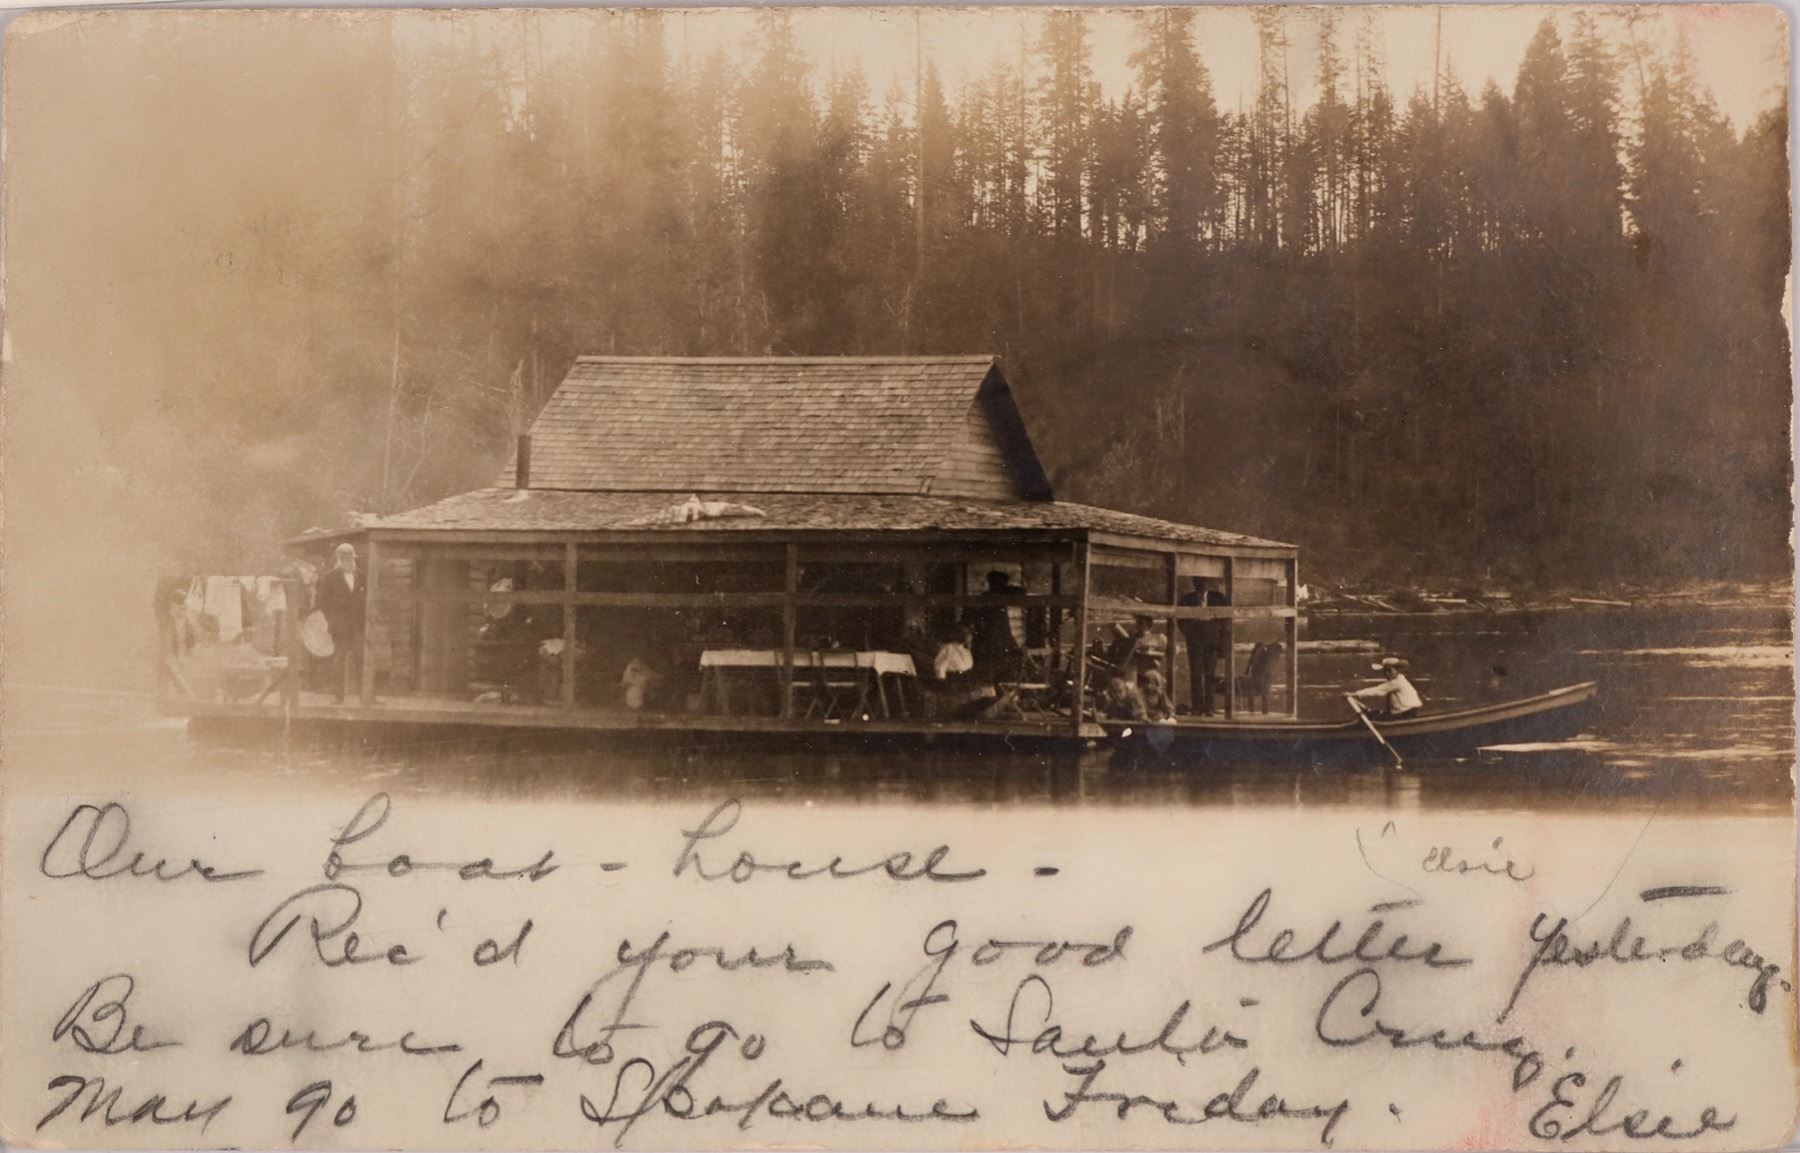 Our boat-house-
elsie
Rec'd your good letter yesterday.
Be sure to go to Santa Cruz.
May go to Spokane Friday. Elsie